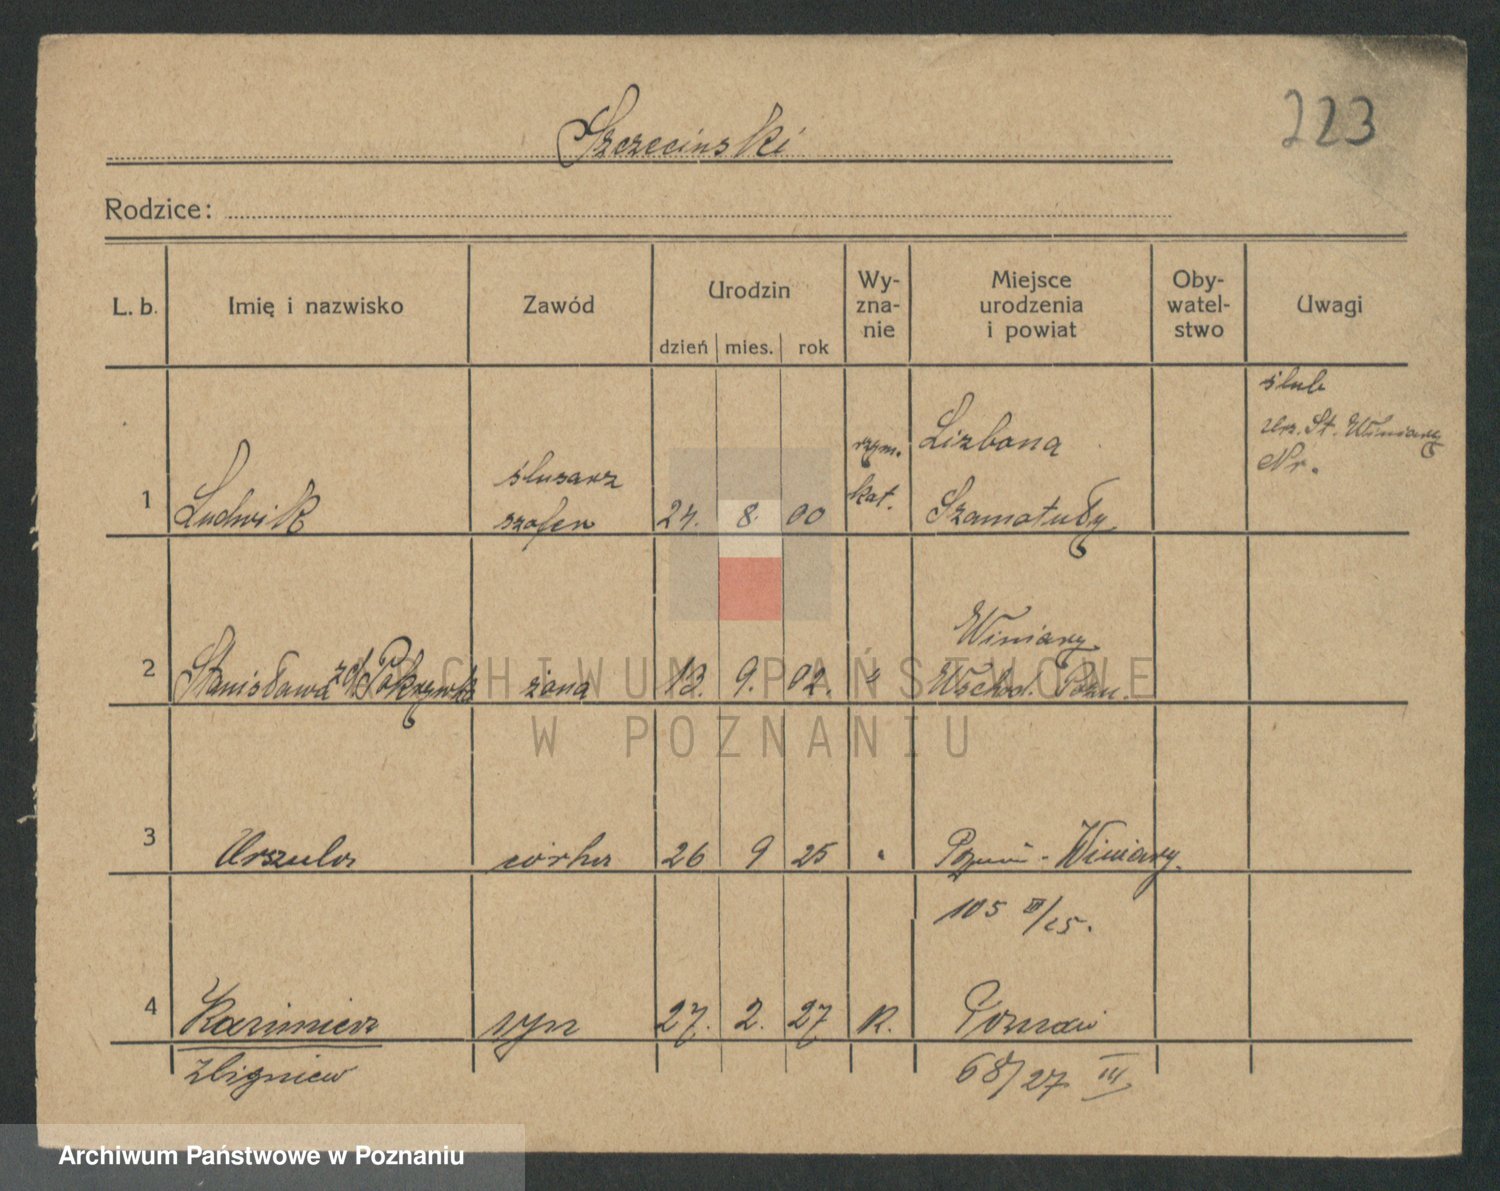 223
Szczeciński
Rodzice:
L. b. Imię i nazwisko Zawód Urodzin dzień mies. rok Wy-zna-nie Miejsce urodzenia i powiat Oby-watel-stwo Uwagi
ślub
Urz. St. Winiary
Nr.
1 Ludwik ślusarz szofer 24. 8. 00 rzym. kat. Lizbona Szamotuły
2 Stanisława zd. żona 13. 9. 02. " Winiary Wschod. Pozn.
3 Urszula córka 26 9 25 " Poznań - Winiary
105 III/25.
4 Kazimierz syn 27. 2. 27 K. Poznań
Zbigniew 68/27 III
ARCHIWUM PAŃSTWOWE
W POZNANIU
Archiwum Państwowe w Poznaniu